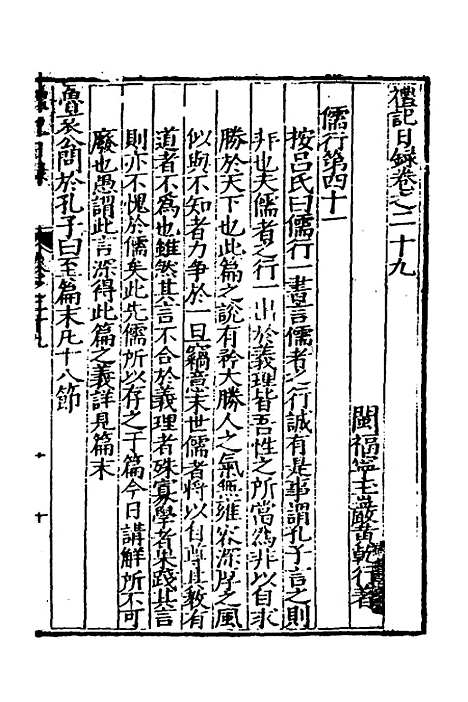 禮記日錄卷之二十九
閩福寧玉巖黃乾行著
儒行第四十一
按呂氏曰儒行一書言儒者之行誠有是事謂孔子言之則
非也夫儒者之行一出於義理皆吾性之所當為非以自求
勝於天下也此篇之說有矜大勝人之氣無雍容深厚之風
似與不知者力爭於一旦竊意末世儒者將以自尊其教有
道者不為也雖然其言不合於義理者殊寡學者果踐其言
則亦不愧於儒矣此先儒所以存之于篇今日講解所不可
廢也愚謂此言深得此篇之義詳見篇末
魯哀公問於孔子曰至篇末凡十八節